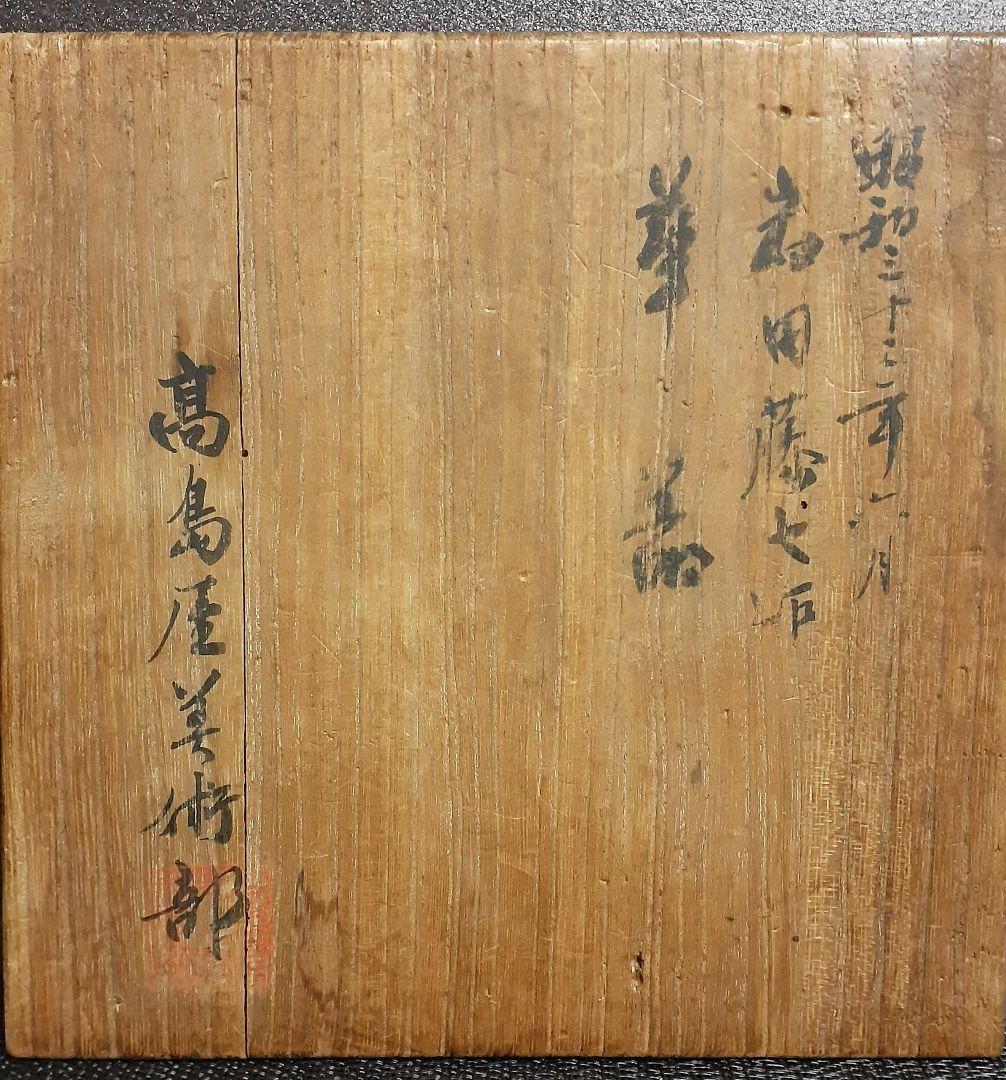 昭和三十三年六月
岩田藤七作
華器
高島屋美術部